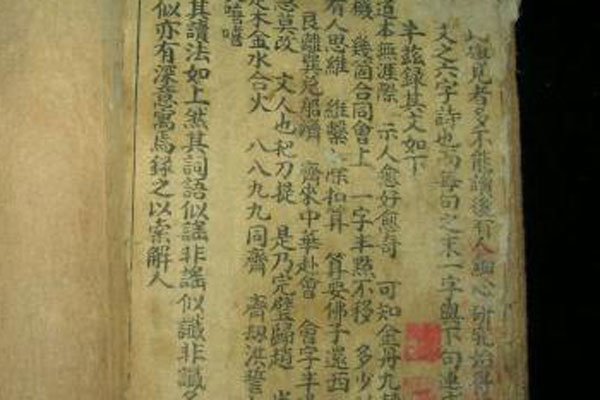 見者多不能讀後有人細心研究始得
文之六字詩也而每句之末一字與下句連
半茲錄其文如下
道本無涯際 示人愈好愈奇 可知金丹九轉
機 幾箇合同會上 一字半點不移 多少
有人思維 維繫 保扣算 算 佛子還西
艮離巽兌船濟 齊來中華赴會 會字半
忌莫改 文人也把刀提 是乃完璧歸趙
木金水合火 八八九九同齊 齊 洪誓
嘻嘻
其讀法如上然其詞語似謠非謠似讖非讖
似亦有深意寓焉錄之以索解人